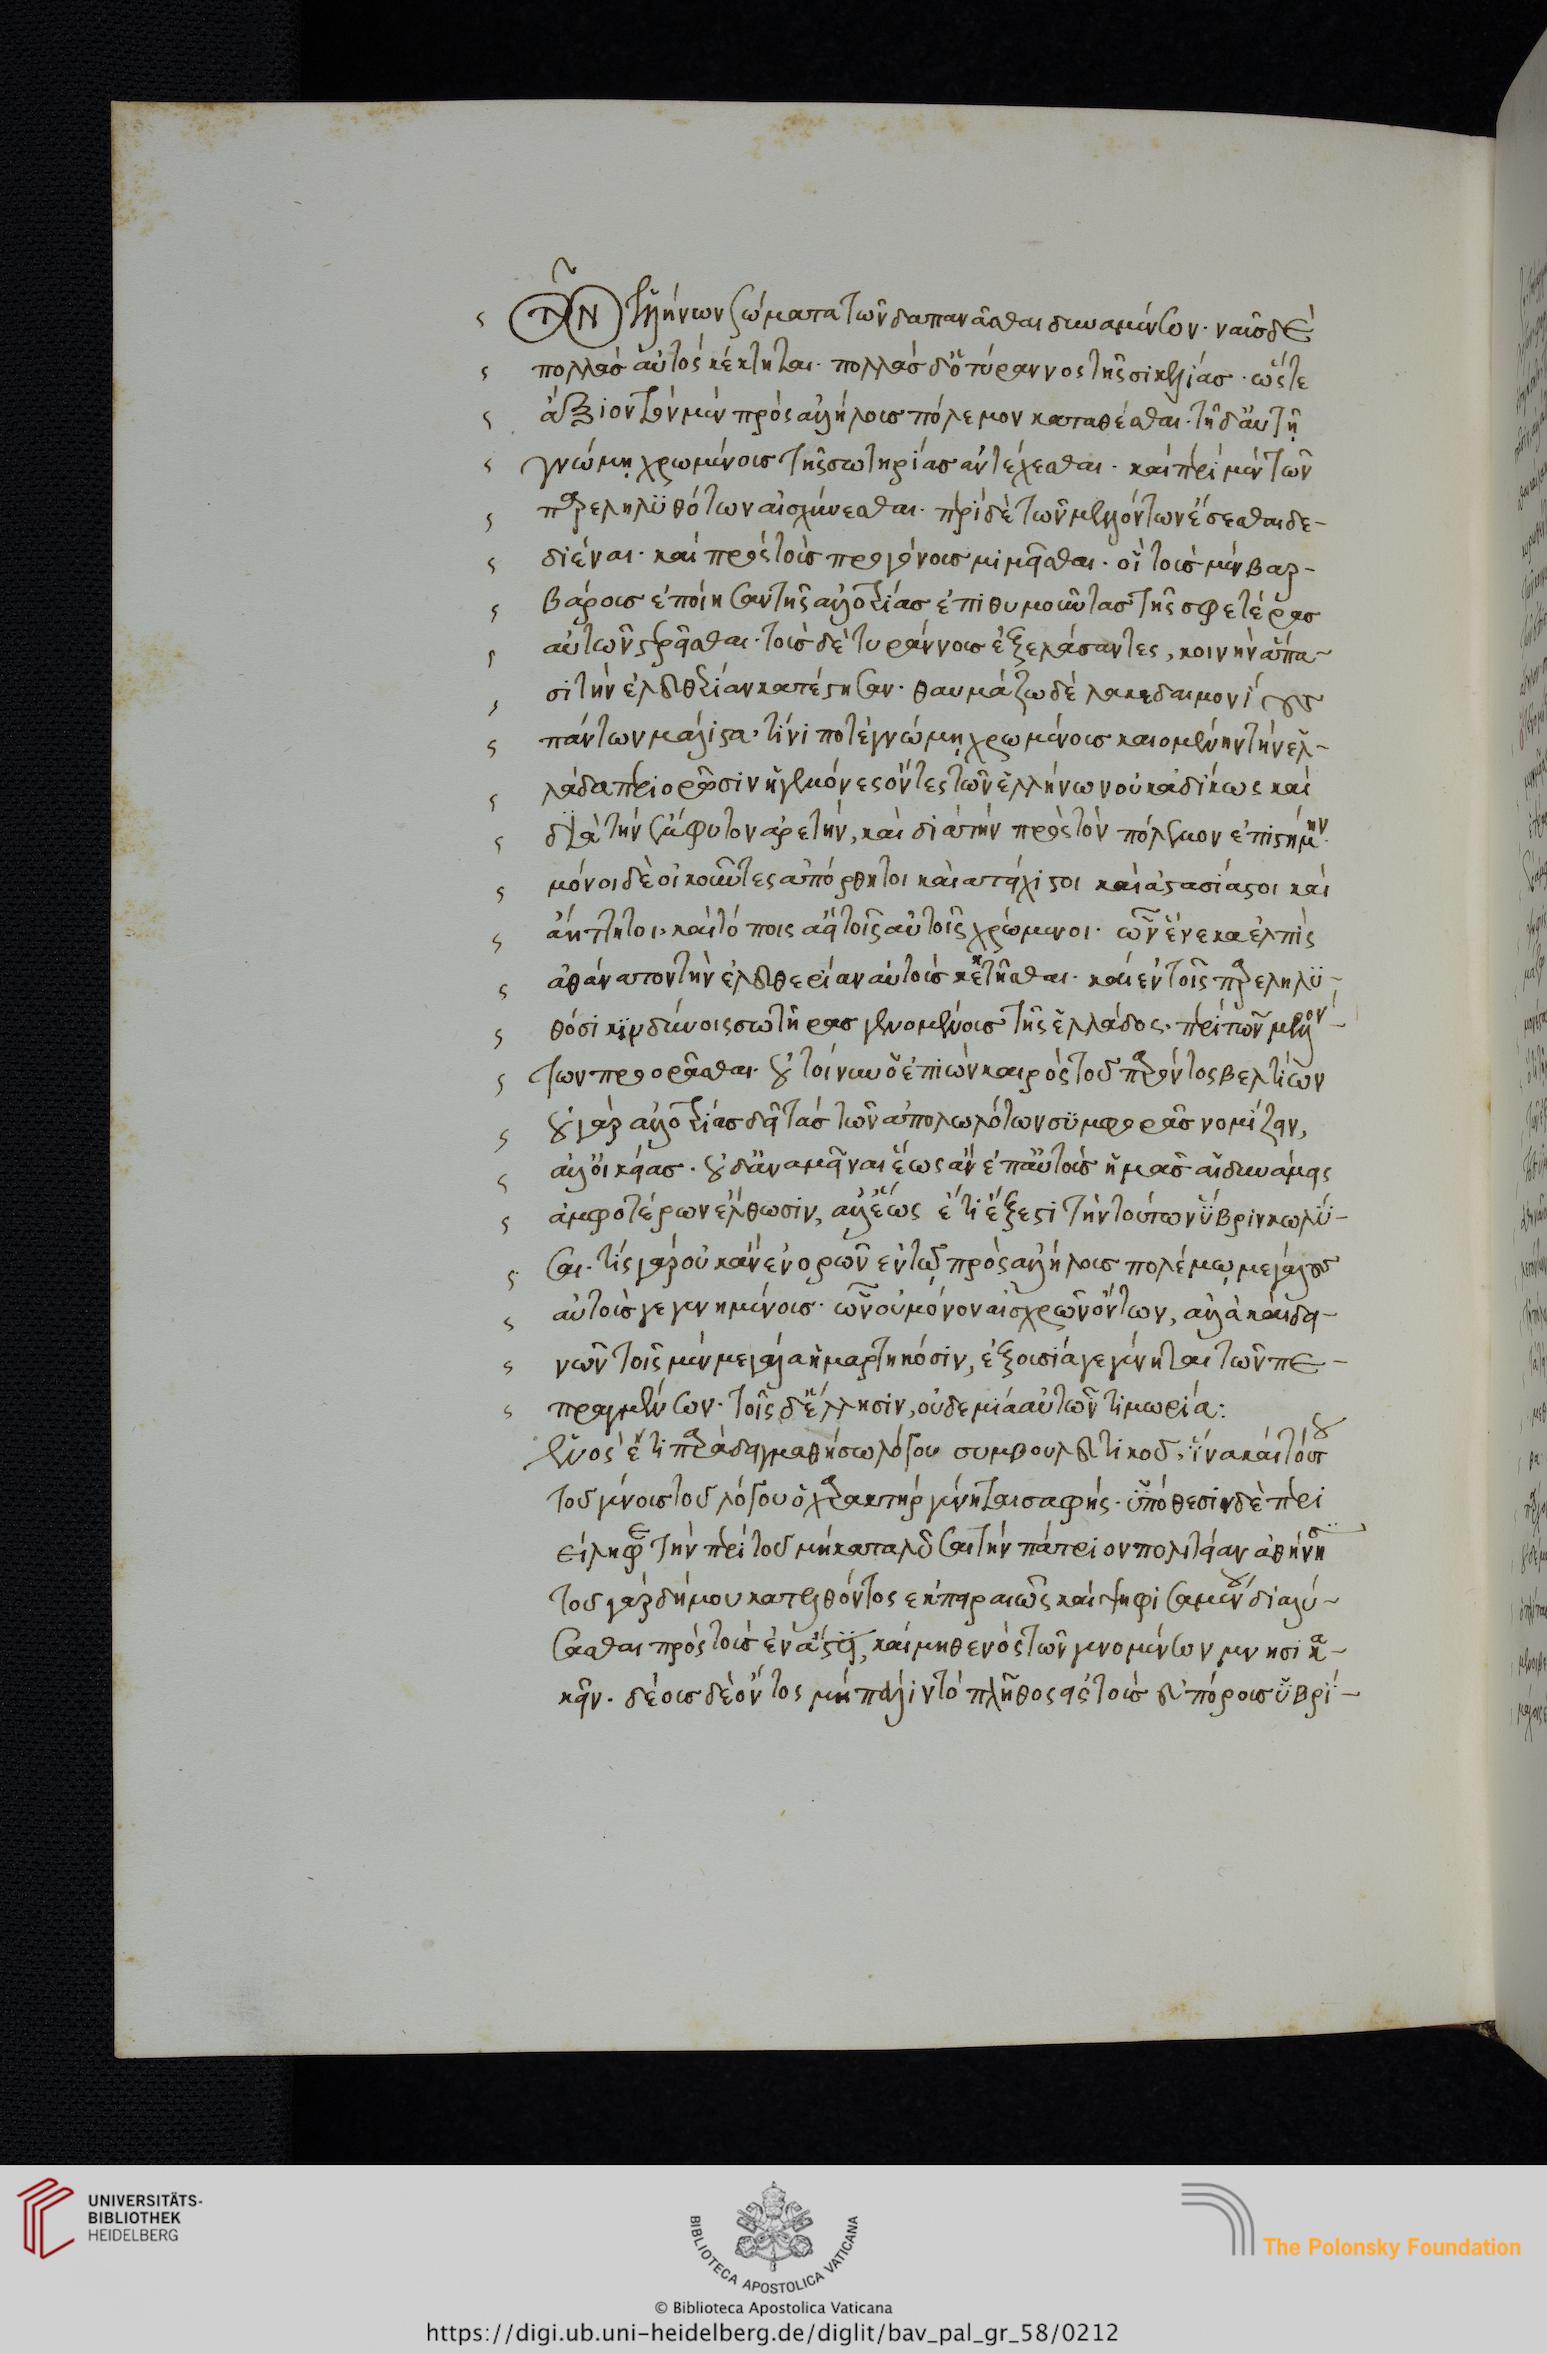 τῶν ἑλλήνων σώματα τῶν δαπανᾶσθαι δυναμένων· ναῦς δὲ
πολλὰς αὐτὸς κέκτηται· πολλὰς δ' ὁ τύραννος τῆς σικελίας· ὥστε
ἄξιον τὸν μὲν πρὸς ἀλλήλους πόλεμον καταθέσθαι· τῇ δ' αὐτῇ
γνώμῃ χρωμένους τῆς σωτηρίας ἀντέχεσθαι· καὶ περὶ μὲν τῶν
παρεληλϋθότων αἰσχύνεσθαι· περὶ δὲ τῶν μελλόντων ἔσεσθαι δε-
διέναι· καὶ πρὸς τοὺς προγόνους μιμεῖσθαι· οἳ τοὺς μὲν βαρ-
βάρους ἐποίησαν τῆς ἀλλοτρίας ἐπιθυμοῦντας τῆς σφετέρας
αὐτῶν στερεῖσθαι· τοὺς δὲ τυράννους ἐξελάσαντες, κοινὴν ἅπα-
σι τὴν ἐλευθερίαν κατέστησαν· θαυμάζω δὲ λακεδαιμονίους
πάντων μάλιστα· τίνι ποτὲ γνώμῃ χρωμένους καιομένην τὴν ἑλ-
λάδα περιορῶσιν ἡγεμόνες ὄντες τῶν ἑλλήνων οὐκ ἀδίκως καὶ
διὰ τὴν ἔμφυτον ἀρετήν, καὶ διὰ τὴν πρὸς τὸν πόλεμον ἐπιστήμην·
μόνοι δὲ οἰκοῦντες ἀπόρθητοι καὶ ἀτείχιστοι καὶ ἀστασίαστοι καὶ
ἀήττητοι· καὶ τόποις ἀεὶ τοῖς αὐτοῖς χρώμενοι· ὧν ἕνεκα ἐλπὶς
ἀθάνατον τὴν ἐλευθερίαν αὐτοὺς κεκτῆσθαι· καὶ ἐν τοῖς παρεληλϋ-
θόσι κινδύνοις σωτῆρας γενομένους τῆς ἑλλάδος· περὶ τῶν μελλόν-
των προορᾶσθαι· οὐ τοίνυν ὁ ἐπιὼν καιρὸς τοῦ παρόντος βελτίων
οὐ γὰρ ἀλλοτρίας δεῖ τὰς τῶν ἀπολωλότων συμφορὰς νομίζειν,
ἀλλ' οἰκείας· οὐδ' ἀναμεῖναι ἕως ἂν ἐπ' αὐτοὺς ἡμᾶς αἱ δυνάμεις
ἀμφοτέρων ἔλθωσιν, ἀλλ' ἕως ἔτι ἔξεστι τὴν τούτων ὕβριν κωλῦ-
σαι· τίς γὰρ οὐκ ἂν ἐνορῶν ἐν τῷ πρὸς ἀλλήλους πολέμῳ μεγάλους
αὐτοὺς γεγενημένους· ὧν οὐ μόνον αἰσχρῶν ὄντων, ἀλλὰ καὶ δει-
νῶν τοῖς μὲν μεγάλα ἡμαρτηκόσιν, ἐξουσία γεγένηται τῶν πε-
πραγμένων· τοῖς δ' ἕλλησιν, οὐδεμία αὐτῶν τιμωρία:
ἑνὸς ἔτι παράδειγμα θήσω λόγου συμβουλευτικοῦ, ἵνα καὶ τούτου
τοῦ γένους τοῦ λόγου ὁ χαρακτὴρ γένηται σαφής· ὑπόθεσιν δὲ περι
είληφε τὴν περὶ τοῦ μὴ καταλῦσαι τὴν πάτριον πολιτείαν ἀθήνῃσι
τοῦ γὰρ δήμου κατελθόντος ἐκ πειραιῶς καὶ ψηφισαμένου διαλύ-
σασθαι πρὸς τοὺς ἐν ἄστει, καὶ μηθενὸς τῶν γενομένων μνησικα-
κεῖν· δέους δὲ ὄντος μὴ πάλιν τὸ πλῆθος εἰς τοὺς εὐπόρους ὑβρί-
UNIVERSITÄTS-
BIBLIOTHEK
HEIDELBERG
BIBLIOTECA APOSTOLICA VATICANA
The Polonsky Foundation
© Biblioteca Apostolica Vaticana
https://digi.ub.uni-heidelberg.de/diglit/bav_pal_gr_58/0212